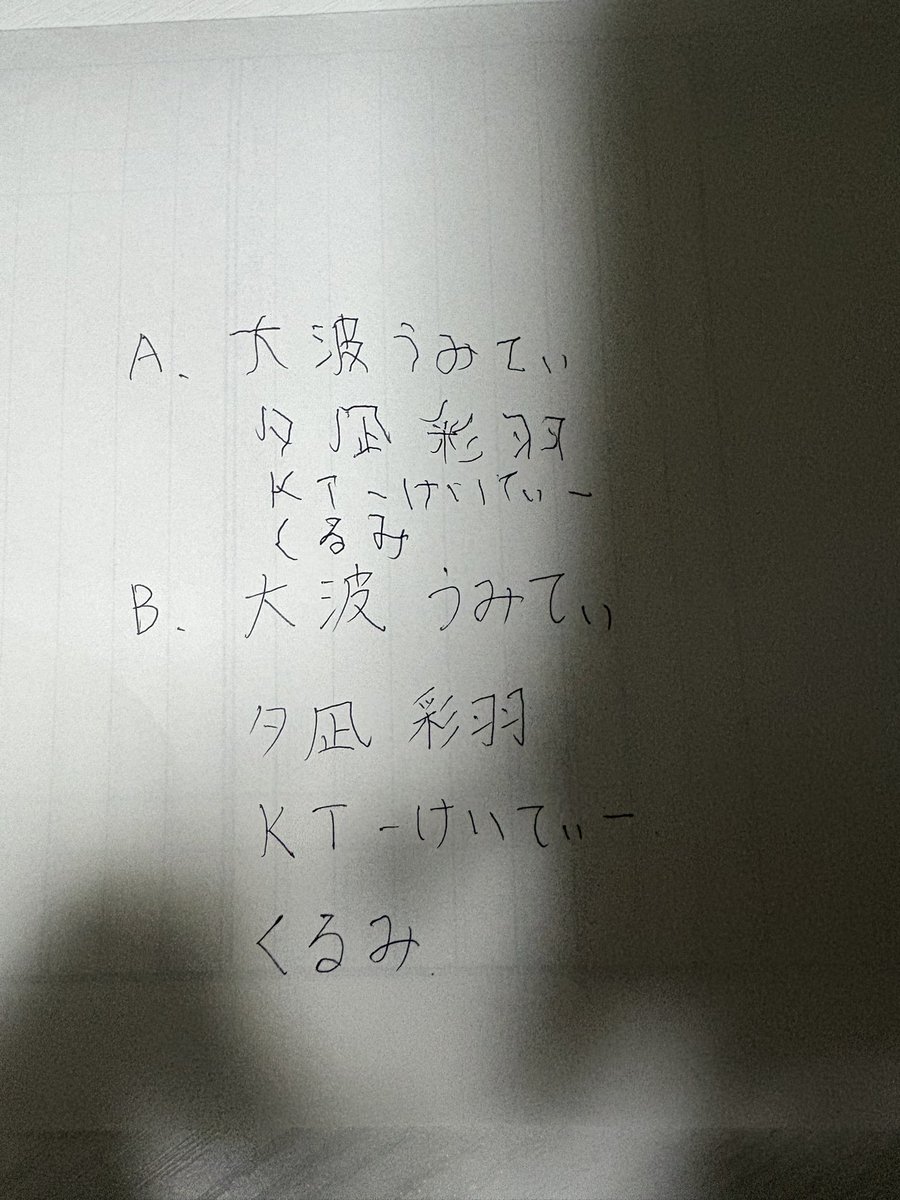 A. 大波うみてぃ
夕凪 彩羽
KT-けいてぃー
くるみ
B. 大波 うみてぃ
夕凪 彩羽
KT-けいてぃー
くるみ